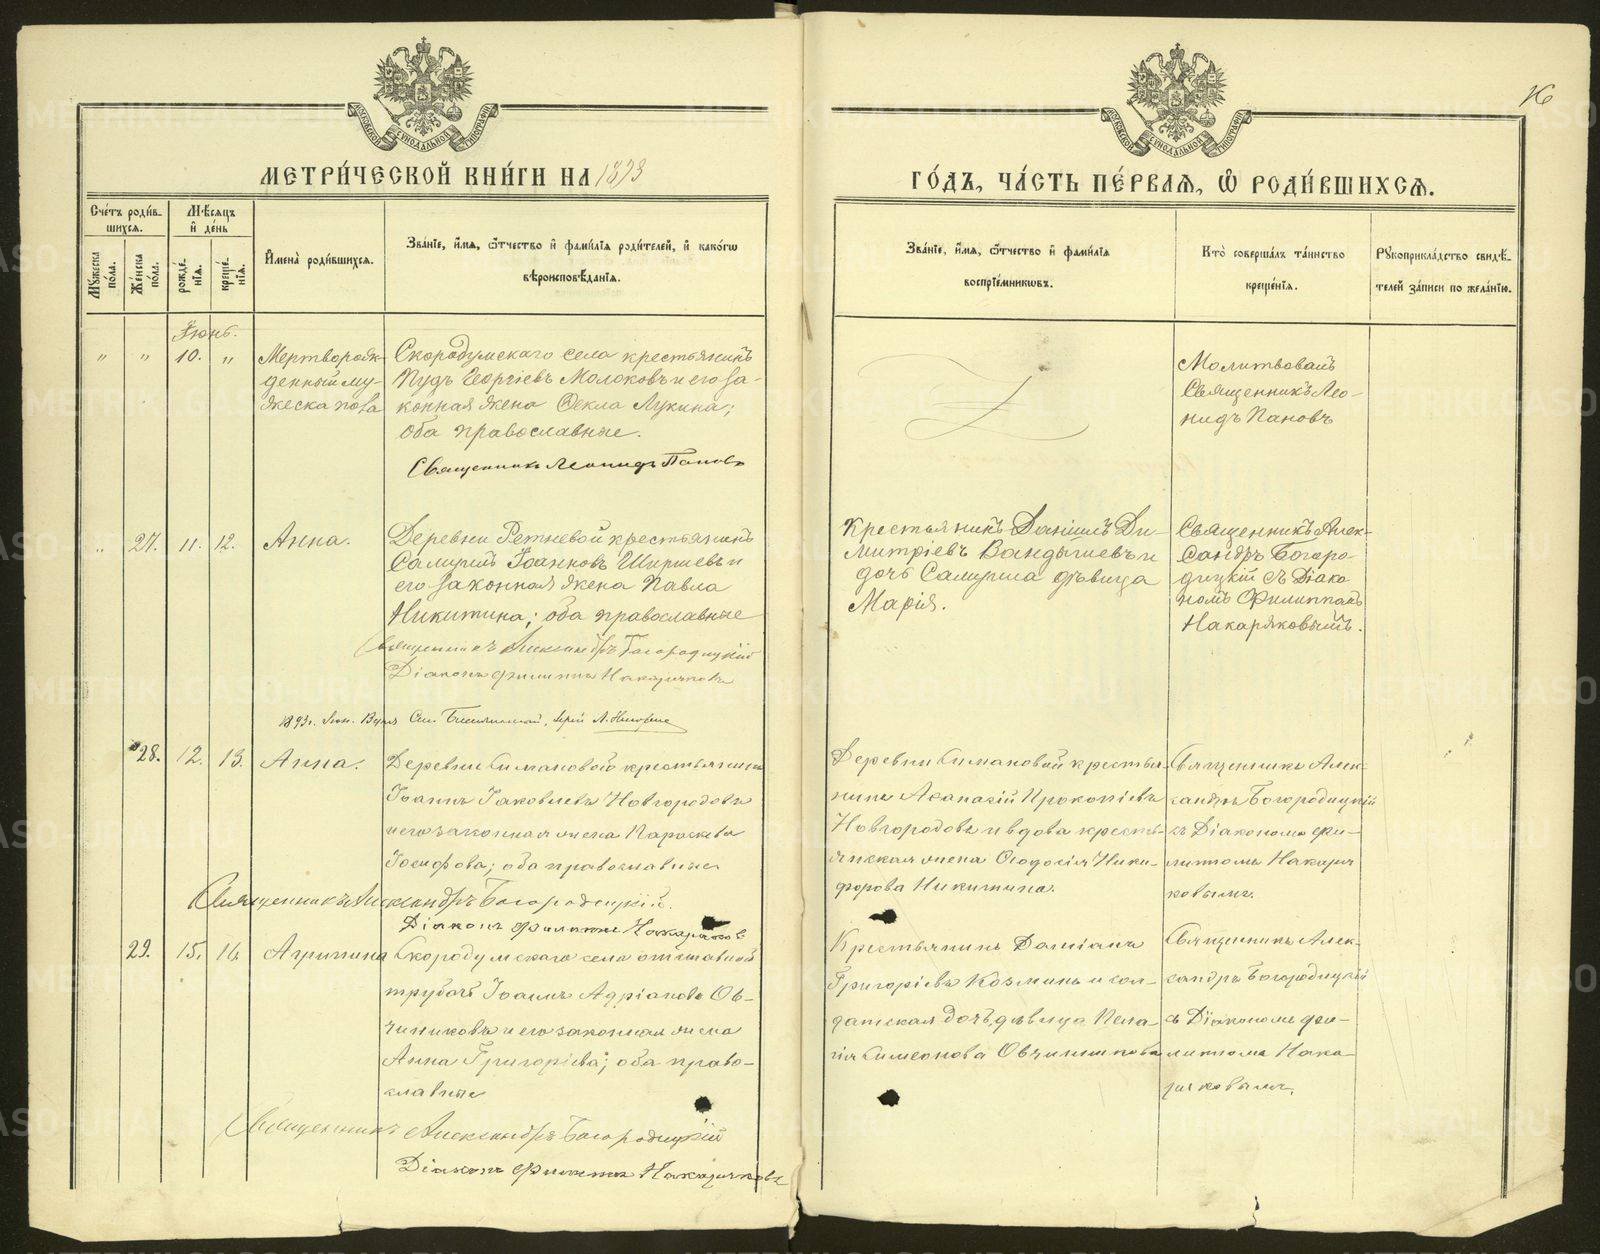 16
МЕТРИ́ЧЕСКОЙ КНИ́ГИ НА 1893
ГО́ДЪ, ЧА́СТЬ ПЕ́РВАѦ, Ѡ҆ РОДИ́ВШИХСѦ.
МОСКОВСКОЙ СѴНОДАЛЬНОЙ ТИПОГРАФІИ
МОСКОВСКОЙ СѴНОДАЛЬНОЙ ТИПОГРАФІИ
Сче́тъ роди́в-
шихсѧ.
Мѣ́сѧцъ
и҆ де́нь
Му́жеска по́ла.
Же́нска по́ла.
рожде́-
нїѧ.
креще́-
нїѧ.
И҆мена̀ роди́вшихсѧ.
Зва́нїе, и҆́мѧ, ѻ҆́тчество и҆ фами́лїѧ роди́телей, и҆ како́гѡ
вѣроисповѣ́данїѧ.
Зва́нїе, и҆́мѧ, ѻ҆́тчество и҆ фами́лїѧ
воспрїе́мникѡвъ.
Кто̀ соверша́лъ та́инство
креще́нїѧ.
Рꙋкоприкла́дство свидѣ́-
телей за́писи по жела́нїю.
Іюнь.
" " 10. "
Мертворож-
денный му-
жеска пола
Скородумскаго села крестьянинъ
Пудъ Георгіевъ Молоковъ и его за-
конная жена Ѳекла Лукина;
оба православные.
Священникъ Леонидъ Пановъ
Молитвовалъ
Священникъ Лео-
нидъ Пановъ
" 27. 11. 12. Анна.
Деревни Ретневой крестьянинъ
Іоанновъ Ширшевъ и
его законная жена Павла
Никитина; оба православные
Священникъ Александръ Богородицкій
Діаконъ Филиппъ Накаряковъ
Крестьянинъ Даніилъ Ди-
митріевъ Вандышевъ и
дочь дѣвица
Марія.
Священникъ Алек-
сандръ Богоро-
дицкій съ Діако
номъ Филиппомъ
Накаряковымъ.
1893г.
28. 12. 13. Анна.
Деревни Симановой крестьянинъ
Іоаннъ Іаковлевъ Новгородовъ
и его законная жена Параскева
Іосифова; оба православные
Священникъ Александръ Богородицкій.
Діаконъ Филиппъ Накаряковъ
Деревни Симановой крестья-
нинъ Аѳанасій Прокопіевъ
Новгородовъ и вдова кресть-
янская жена Ѳеодосія Ники-
форова Никитина.
Священникъ Алек-
сандръ Богородицкій
съ Діакономъ Фи-
липпомъ Накаря
ковымъ.
29. 15. 16. Агрипина
Скородумскаго села отставной
трубачъ Іоаннъ Адріановъ Ов-
чинниковъ и его законная жена
Анна Григоріева; оба право-
славные
Священникъ Александръ Богородицкій
Діаконъ Филиппъ Накаряковъ
Крестьянинъ Даміанъ
Григоріевъ Козминъ и сол-
датская дочь, дѣвица Пела-
гія Симеонова Овчинникова
Священникъ Алек-
сандръ Богородицкій
съ Діакономъ Фи-
липпомъ Нака-
ряковымъ.